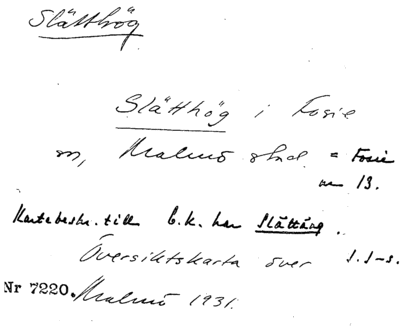 Slätthög
Slätthög i Fosie
sn, Malmö stad. = Fosie
nr 13.
Kartebeskr. till E.k. har Slättäng.
Översiktskarta över J.J-s.
Nr 7220. Malmö 1931.